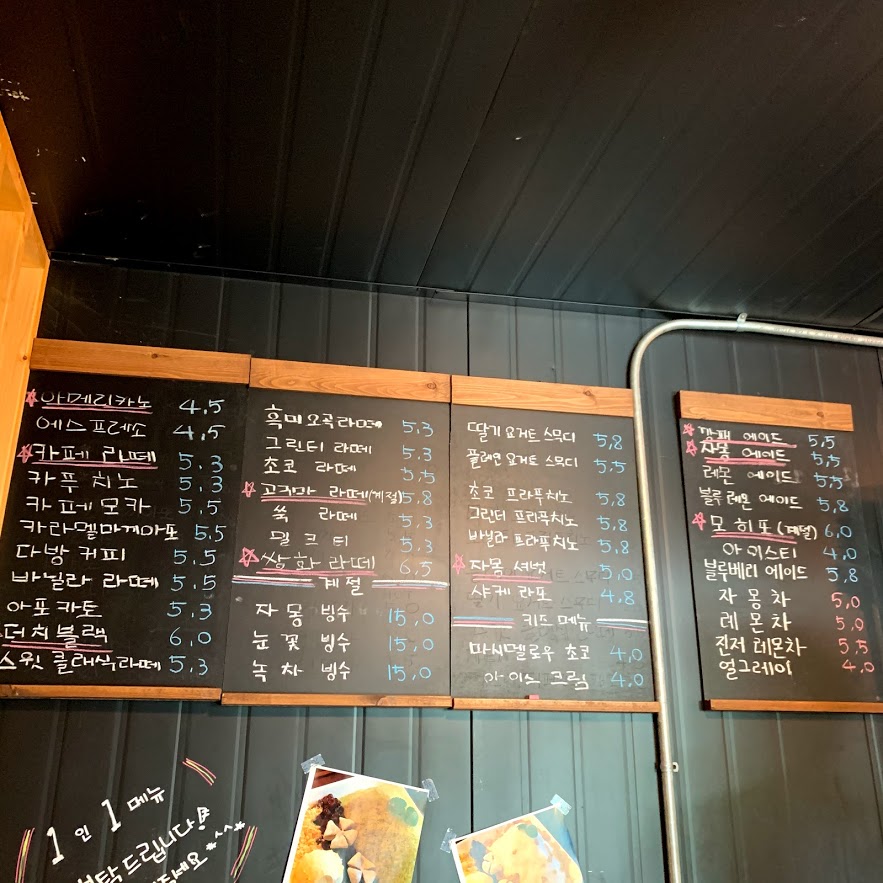 ☆ 아메리카노 4,5
에스프레소 4,5
☆ 카페 라떼 5.3
카푸치노 5.3
카페모카 5.5
카라멜마끼아또 5.5
다방 커피 5.5
바닐라 라떼 5.5
아포카토 5.3
더치블랙 6.0
스윗 클래식라떼 5.3
흑미오곡라떼 5.3
그린티 라떼 5.3
초코 라떼 5.5
☆ 고구마 라떼(계절) 5.8
쑥 라떼 5.3
밀크티 5.3
☆ 쌍화 라떼 6.5
계절
자몽 빙수 15,0
눈꽃 빙수 15,0
녹차 빙수 15,0
딸기 요거트 스무디 5,8
플레인 요거트 스무디 5,5
초코 프라푸치노 5,8
그린티 프라푸치노 5,8
바닐라 프라푸치노 5,8
☆ 자몽 셔벗 5,0
샤케라또 4.8
키즈메뉴
마시멜로우 초코 4,0
아이스크림 4,0
에이드 5,5
☆ 자몽 에이드 5,5
레몬 에이드 5,5
블루레몬 에이드 5,8
☆ 모히또 (계절) 6,0
아이스티 4,0
블루베리 에이드 5,8
자몽차 5,0
레몬차 5,0
진저 레몬차 5,5
얼그레이 4,0
1인 1메뉴
부탁드립니다